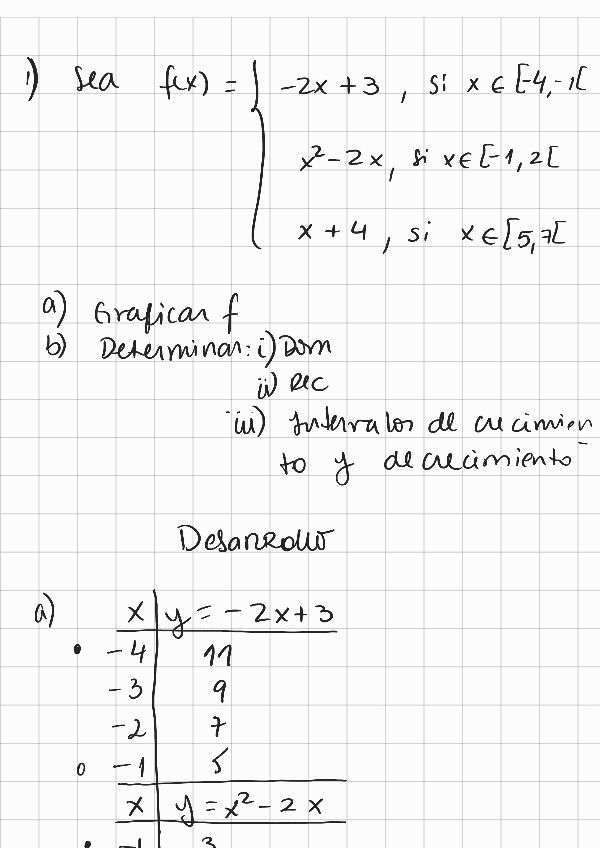 1) Sea f(x) = { -2x + 3 , si x ∈ [-4,-1[
x² - 2x, si x ∈ [-1, 2[
x + 4 , si x ∈ [5, 7[
a) Graficar f
b) Determinar: i) Dom
ii) Rec
iii) Intervalos de crecimien
to y decrecimiento
Desarrollo
a) x | y = -2x+3
• -4 | 11
-3 | 9
-2 | 7
o -1 | 5
x | y = x² - 2x
• -1 | 3